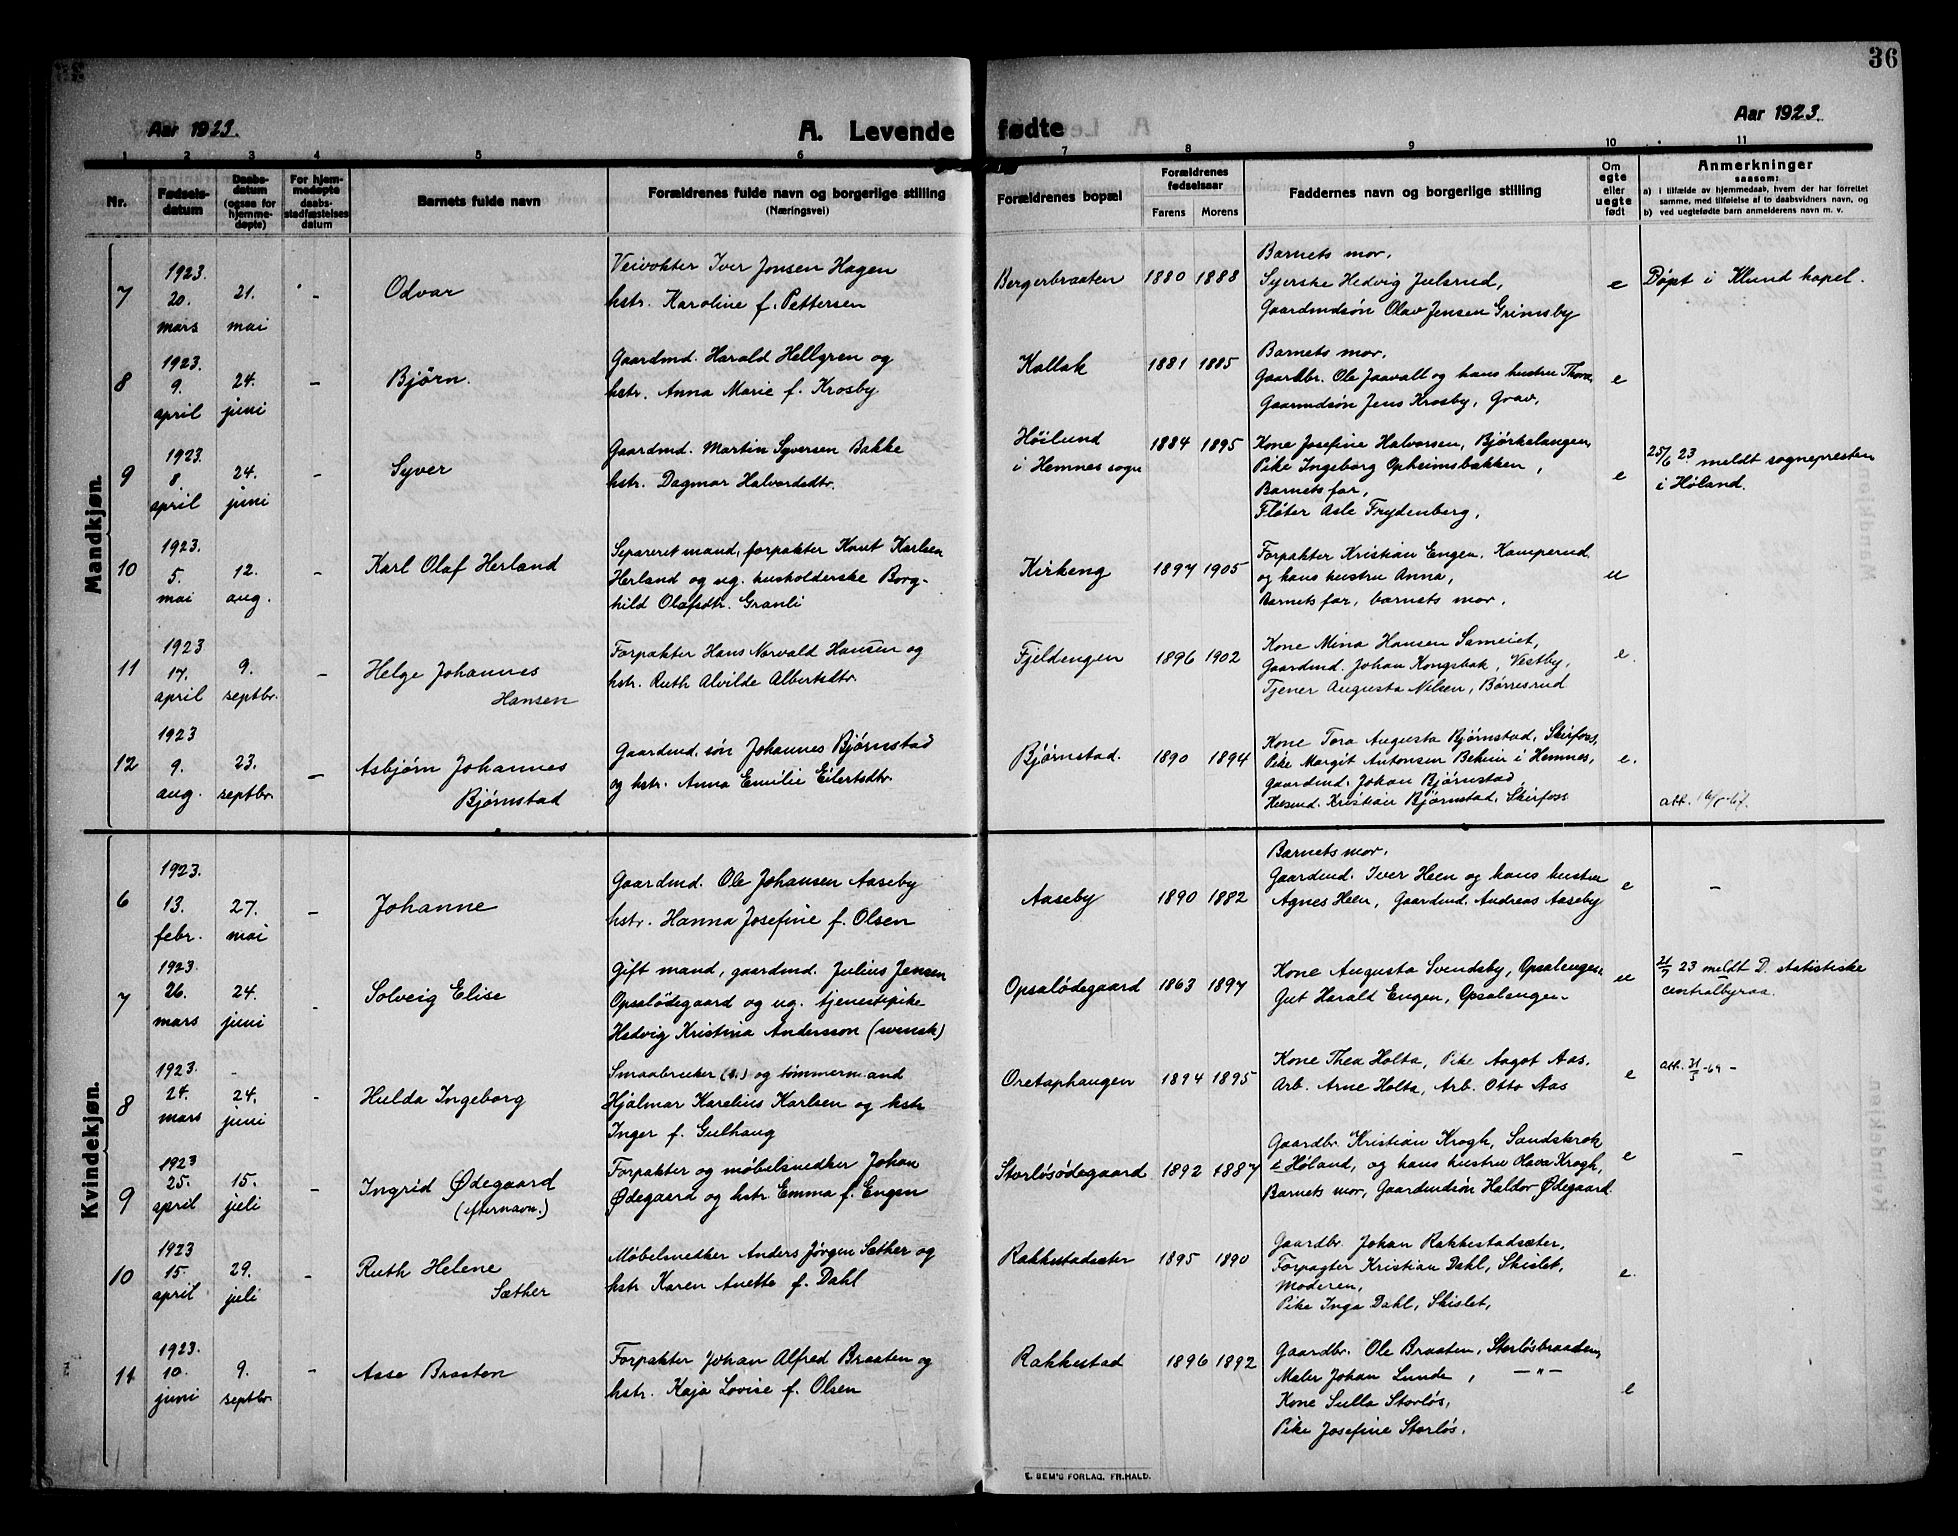 36
Aar 1923.
A. Levende fødte
Aar 1923.
1 2 3 4 5 6 7 8 9 10 11
Nr.
Fødsels-
datum
Daabs-
datum
(ogsaa for
hjemme-
døpte)
For hjem-
medøpte
daabs-
stadfæstelses
datum
Barnets fulde navn
Forældrenes fulde navn og borgerlige stilling
(Næringsvei)
Forældrenes bopæl
Forældrenes
fødselsaar
Farens Morens
Faddernes navn og borgerlige stilling
Om
egte
eller
uegte
født
Anmerkninger
saasom:
a) i tilfælde av hjemmedaab, hvem der har forrettet
samme, med tilføielse af to daabsvidners navn, og
b) ved uegtefødte barn anmelderens navn m. v.
Mandkjøn.
7
1923.
20.
mars
21.
mai
-
Odvar
Veivokter Iver Jonsen Hagen
hstr. Karoline f. Pettersen
Bergerbraaten
1880 1888
Barnets mor.
Syerske Hedvig Julsrud,
Gaardmdsøn Olav Jensen Grimsby
e
Døpt i Klund kapel.
8
1923.
9.
april
24.
juni
-
Bjørn.
Gaardmd. Harald Hellgren og
hstr. Anna Marie f. Krosby
Kollak
1881 1885
Barnets mor.
Gaardbr. Ole Jaavall og hans hustru Thora,
Gaarmdsøn Jens Krosby, Grav,
e
9
1923.
8.
april
24.
juni
-
Syver
Gaardmd. Martin Syversen Bakke
hstr. Dagmar Halvordsdtr.
Høilund
i Hemnes sogn
1884 1895
Kone Josefine Halvorsen, Bjørkelangen,
Pike Ingeborg Opheimsbakken,
Barnets far,
Fløter Asle Frydenberg,
e
25/6 23 meldt sognepresten
i Høland.
10
1923.
5.
mai
12.
aug.
-
Karl Olaf Herland
Separeret mand, forpakter Knut Karlsen
Herland og ug. husholderske Borg-
hild Olafsdtr. Granli
Kirkeng
1897 1905
Forpakter Kristian Engen, Kamperud
og hans hustru Anna,
Barnets far, barnets mor.
u
11
1923
17.
april
9.
septbr.
-
Helge Johannes
Hansen
Forpakter Hans Norvald Hansen og
hstr. Ruth Alvilde Albertsdtr.
Fjeldengen
1896 1902
Kone Mina Hansen Sameiet,
Gaardmd. Johan Kongsbak, Vestby,
Tjener Augusta Nilsen, Børresrud
e.
12
1923
9.
aug.
23.
septbr.
-
Asbjørn Johannes
Bjørnstad
Gaardmd. søn Johannes Bjørnstad
og hstr. Anna Emilie Eilertsdtr.
Bjørnstad.
1890 1894
Kone Tora Augusta Bjørnstad, Skirfoss,
Pike Margit Antonsen i Hemnes,
Gaardmd. Johan Bjørnstad
Husmd. Kristian Bjørnstad, Skirfoss
e.
att.
Kvindekjøn.
6
1923.
13.
febr.
27.
mai
-
Johanne
Gaardmd. Ole Johansen Aaseby
hstr. Hanna Josefine f. Olsen
Aaseby
1890 1882
Barnets mor.
Gaardmd. Iver Heen og hans hustru
Agnes Heen, Gaardmd. Andreas Aaseby
e
-
7
1923.
26.
mars
24.
juni
-
Solveig Elise
Gift mand, gaardmd. Julius Jensen
Opsalødegaard og ug. tjenestepike
Hedvig Kristina Andersson (svensk)
Opsalødegaard
1863 1897
Kone Augusta Svendsby, Opsalengen
Gut Harald Engen, Opsalengen.
u
21/7 23 meldt D. statistiske
centralbyraa.
8
1923.
24.
mars
24.
juni
-
Hulda Ingeborg
Smaabruker (s.) og tømmermand
Hjalmar Karelius Karlsen og hstr
Inger f. Gulhaug
Oretaphaugen
1894 1895
Kone Thea Holta, Pike Aagot Aas.
Arb. Arne Holta, Arb. Otto Aas
e
att. 31/3 -69 -
9
1923
25.
april
15.
juli
-
Ingrid Ødegaard
(efternavn.)
Forpakter og møbelsnedker Johan
Ødegaard og hstr Emma f. Engen
Storløsødegaard
1892 1887
Gaardbr. Kristian Krogh, Sandskrok
i Høland, og hans hustru Olava Krogh,
Barnets mor, Gaardmdsøn Haldor Ødegaard.
e
-
10
1923
15.
april
29.
juli
-
Ruth Helene
Sæther
Møbelsnedker Anders Jørgen Sæther og
hstr Karen Anette f. Dahl
Rakkestadsæter
1895 1890
Gaardbr. Johan Rakkestadsæter,
Forpagter Kristian Dahl, Skislet,
Moderen,
Pike Inga Dahl, Skislet,
e.
11
1923.
10.
juni
9.
septbr.
-
Aase Braaten
Forpakter Johan Alfred Braaten og
hstr. Kaja Lovise f. Olsen
Rakkestad
1896 1892
Gaardbr. Ole Braaten, Storløsbraaden,
Maler Johan Lunde, —"—
Kone Sulla Storløs,
Pike Josefine Storløs.
e
E. SEM'S FORLAG, FR.HALD.